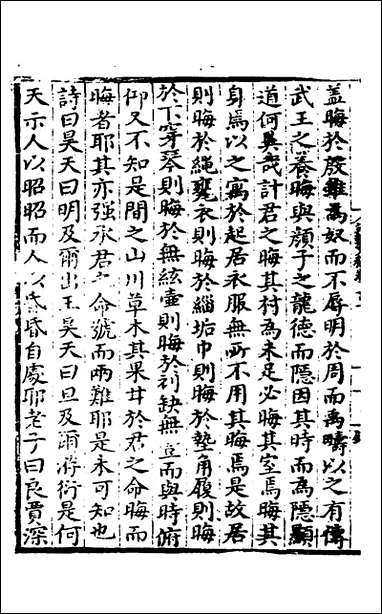 蓋晦於殷雖為奴而不辱明於周而禹疇以之有傳
武王之養晦與顏子之龍德而隱因其時而為隱顯
道何異哉計君之晦其村為未足必晦其室焉晦其
身焉以之寓於起居衣服無所不用其晦焉是故居
則晦於繩甕衣則晦於緇垢巾則晦於墊角履則晦
於下穿琴則晦於無絃壺則晦於刓缺無言而與時俯
仰又不知是間之山川草木其果甘於君之命晦而
晦者耶其亦强承君之命號而兩難耶是未可知也
詩曰昊天曰明及爾出王昊天曰旦及爾游衍是何
天示人以昭昭而人以昏昏自處耶老子曰良賈深